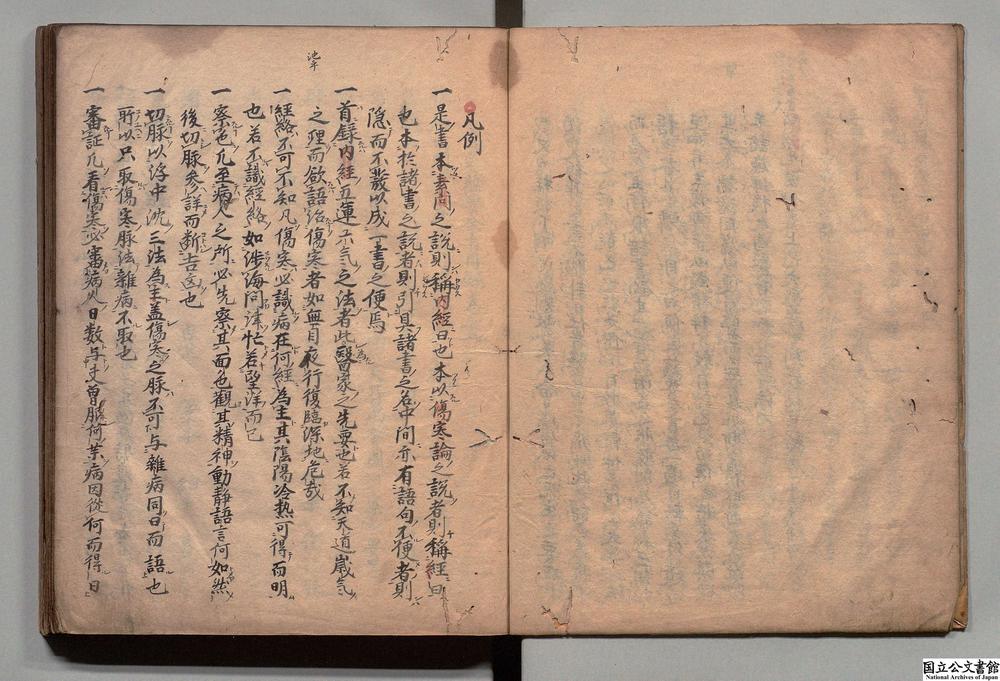 凡例
一 是書本素問之説則稱内經曰也本以傷寒論之説者則稱經曰
也本於諸書之説者則引其諸書之名中間亦有語句不便者則
隠而不載以成一書之便焉
一 首録内經五運六气之法者此醫家之先要也若不知天道歳气
之理而欲語治傷寒者如無目夜行復臨深地危哉
一 經絡不可不知凡傷寒必識病在何經為主其陰陽冷热可得而明
也若不識經絡如渉海问津忙若望洋而已
一 察色凡至病人之所必先察其面色觀其精神動静語言何如然
後切脉参詳而断吉凶也
一 切脉以浮中沈三法為主蓋傷寒之脉不可与雜病同日而語也
所以只取傷寒脉法雜病不取也
一 審証凡看傷寒必審病人日数与丈曽服何藥病因從何而得日
国立公文書館
National Archives of Japan